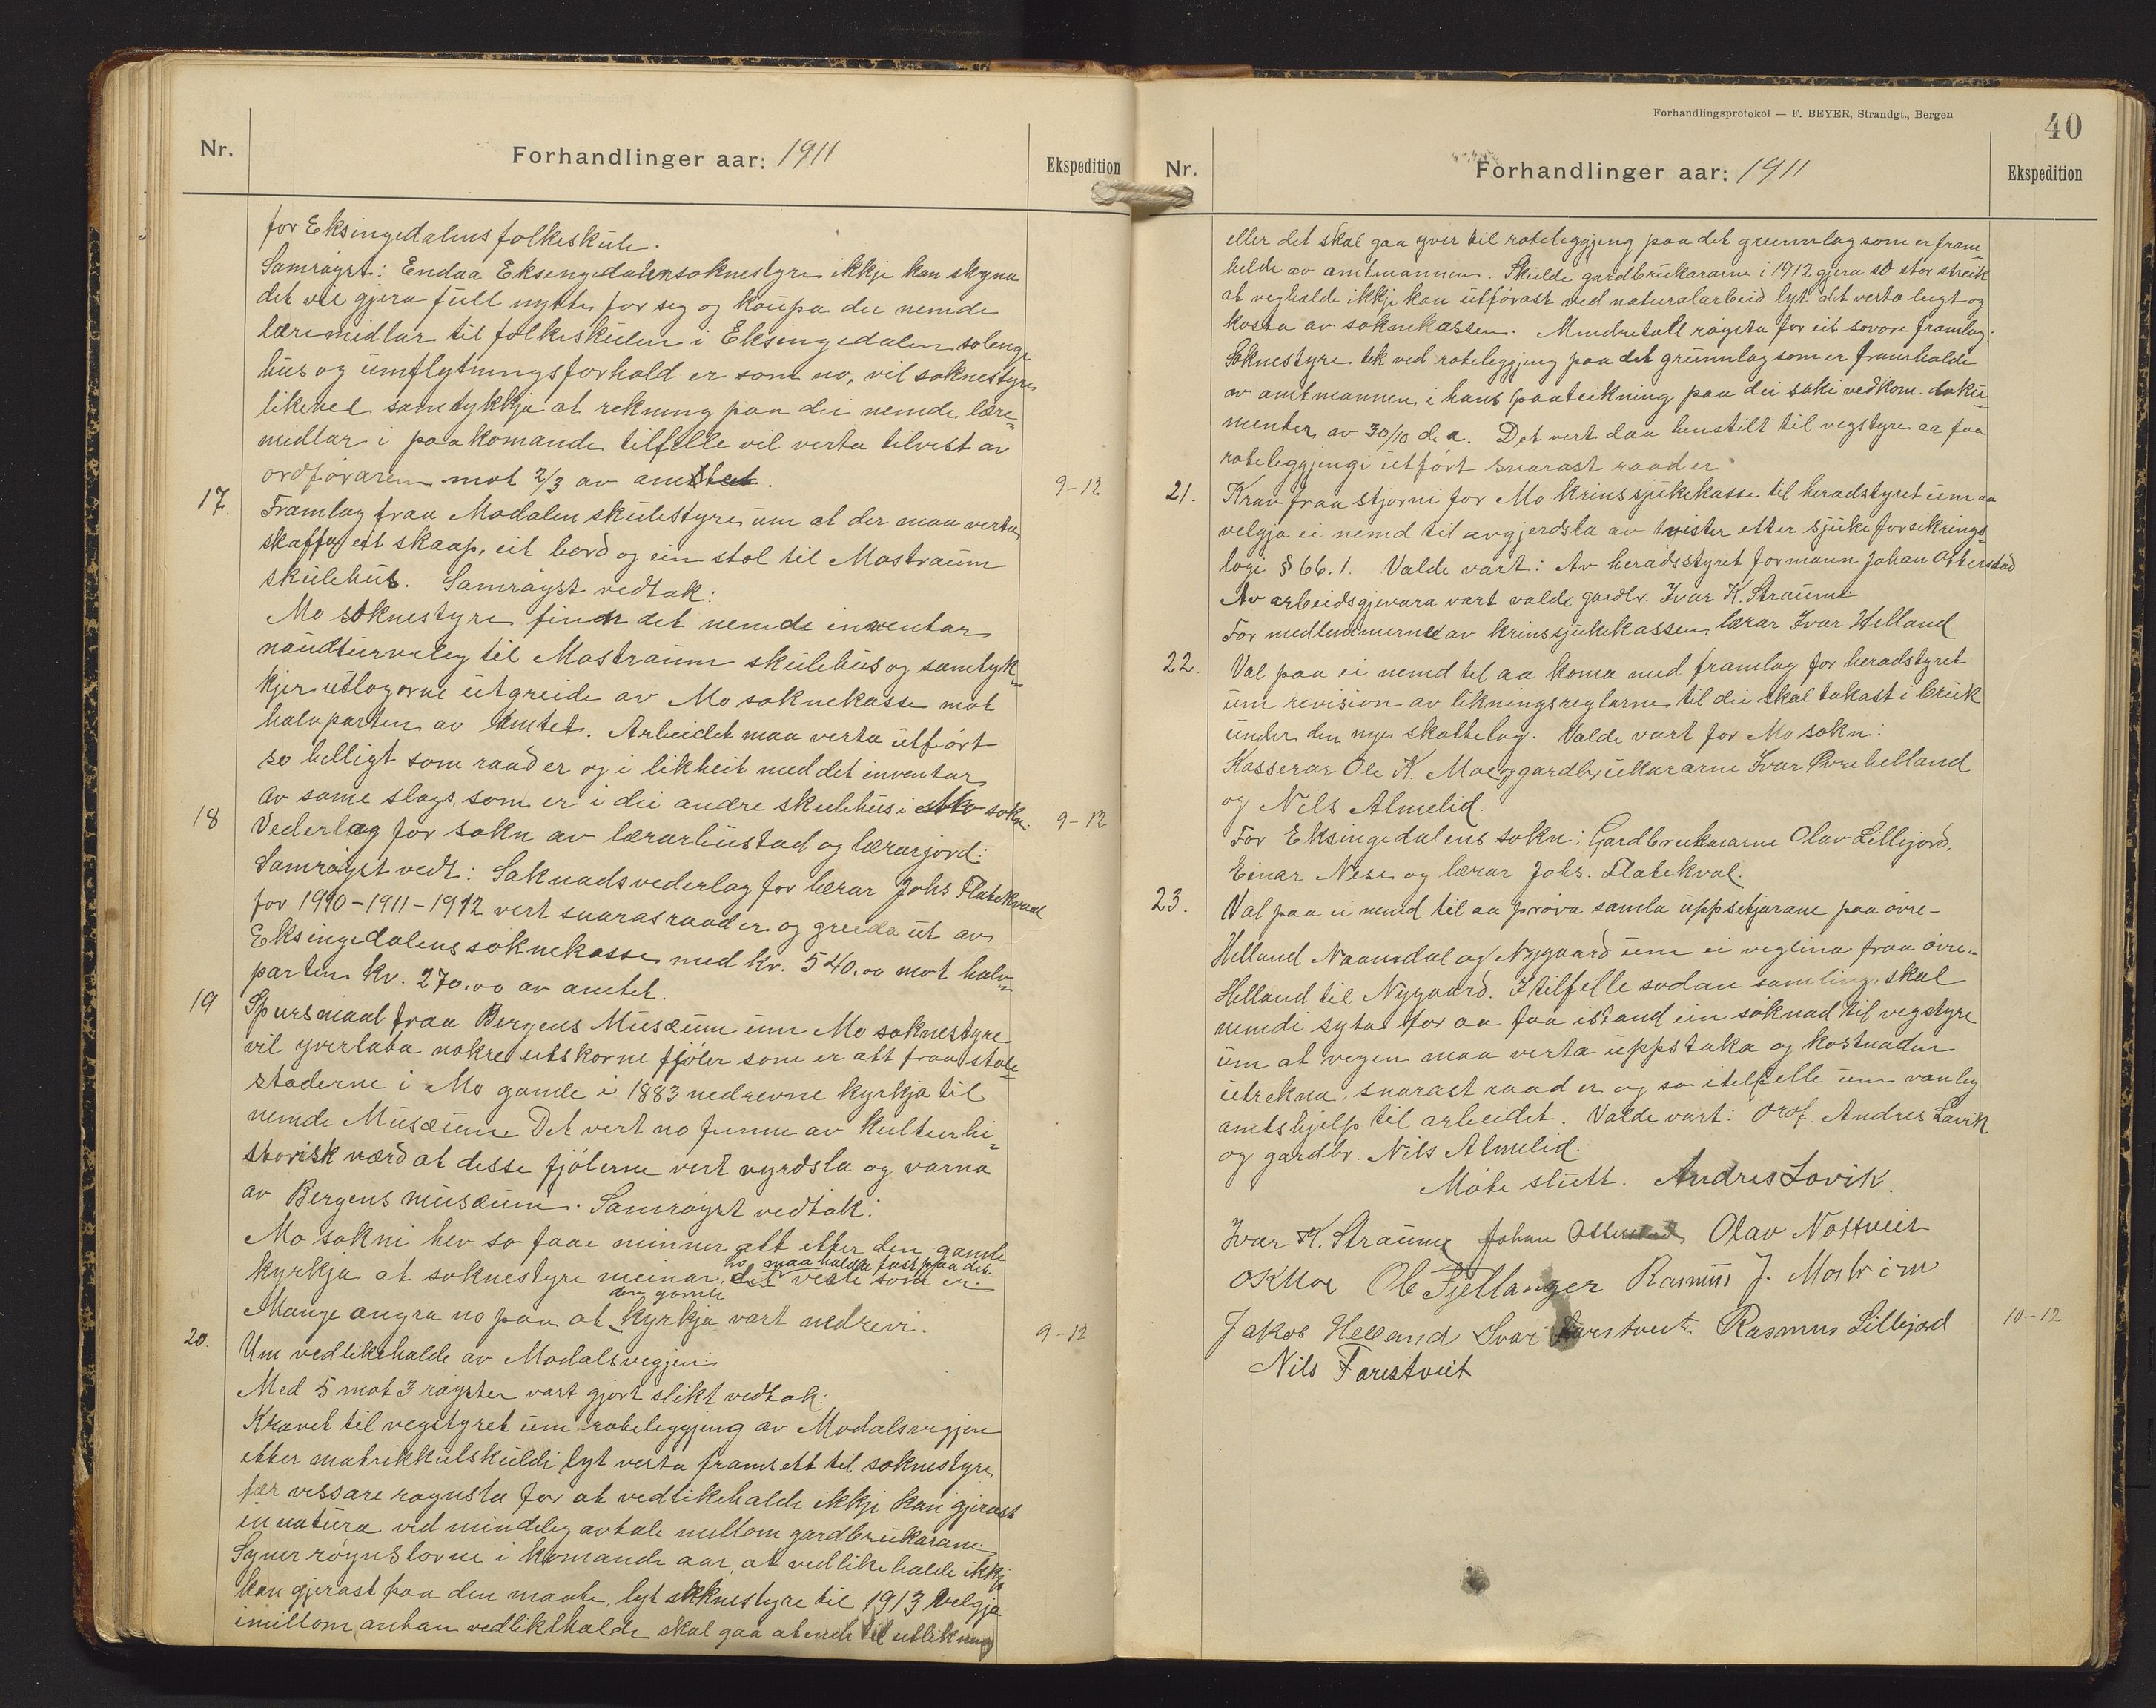 Nr.
Forhandlinger aar: 1911
Ekspedition
for Eksingedalens folkeskule.
Samrøyst: Endaa Eksingedalen soknestyre ikkje kan skyna
det vil gjera full nytte for seg og kaupa dei nemde
læremidlar til folkeskulen i Eksingedalen solenge
hus og umflytningsforhold er som no, vil soknestyre
likevel samtykkja at rekning paa dei nemde lære=
midlar i paakomande tilfelle vil verta tilvist av
ordføraren mot 2/3 av amtet. 9-12
17. Framlag fraa Modalen skulestyre um at der maa verta
skaffa eit skaap, eit bord og ein stol til Mostraum
skulehus. Samrøyst vedtak:
Mo soknestyre finn det nemde inventar
naudturveleg til Mostraum skulehus og samtyk=
kjer utlogorne utgreide av Mo soknekasse mot
halvparten av amtet. Arbeidet maa verta utført
so billigt som raad er og i likheit med det inventar
av same slags som er i dei andre skulehus i Mo sokn. 9-12
18 Vederlag for sakn av lærarbustad og lærarjord:
Samrøyst vedt: Saknadsvederlag for lærar Johs Flatekvaal
for 1910-1911-1912 vert snarast raad er og greida ut av
Eksingedalens soknekasse med kr. 540.00 mot halv=
parten kr. 270.00 av amtet.
19 Spursmaal fraa Bergens Musæum um Mo soknestyre
vil yverlata nokre utskorne fjøler som er att fraa stole=
staderne i Mo gamle i 1883 nedrevne kyrkja til
nemde Musæum. Det vert no funne av kulturhi=
storisk værd at desse fjølerne vert vyrdsla og varna
av Bergens musæum. Samrøyst vedtak:
Mo sokni hev so faae minner att etter den gamle
kyrkja at soknestyre meinar, ho maa halda fast paa det vesle som er.
Mange angra no paa at den gamle kyrkja vart nedrivi.
20. Um vedlikehalde av Modalsvegjen 9-12
Med 5 mot 3 røyster vart gjort slikt vedtak:
Kravet til vegstyret um roteleggjing av Modalsvegjen
etter matrikkulskuldi lyt verta framsett til soknestyre
fær vissare røynsla for at vedlikehalde ikkje kan gjerast
in natura ved mindeleg avtale millom gardbrukarane.
Syner røynslorne i komande aar, at vedlikehalde ikkje
kan gjerast paa den maate, lyt soknestyre til 1913 velgja
imillom anten vedlikehalde skal gaa atende til utlikning
Forhandlingsprotokol — F. BEYER, Strandgt., Bergen
40
Nr.
Forhandlinger aar: 1911
Ekspedition
eller det skal gaa yver til roteleggjing paa det grunnlag som er fram=
helde av amtmannen. Skulde gardbrukararne i 1912 gjera so stor streik
at veghalde ikkje kan utførast ved naturalarbeid lyt det verta leigt og
kosta av soknekassen. Mindretall røysta for eit sovore framlag:
Soknestyre tek ved roteleggjing paa det grunnlag som er framhalde
av amtmannen i hans paateikning paa dei saki vedkom. doku=
menter, av 30/10 d.a. Det vert daa henstilt til vegstyre aa faa
roteleggjingi utført snarast raad er.
21. Krav fraa stjorni for Mo krinssjukekasse til heradstyret um aa
velgja ei nemd til avgjerdsla av tvister etter sjukeforsikrings=
logi § 66.1. Valde vart: Av heradsstyret formann Johan Otterstad
Av arbeidsgjevara vart valde gardbr. Ivar K. Straume
For medlemmerne av krinssjukekassen, lærar Ivar Helland.
22. Val paa ei nemd til aa koma med framlag for heradstyret
um revision av likningsreglarne til dei skal takast i bruk
under den nye skattelog. Valde vart for Mo sokn:
Kasserar Ole K. Moe og gardbrukararne Ivar Øvrehelland
og Nils Almelid.
For Eksingedalens sokn: Gardbrukararne Olav Lillejord,
Einar Nese og lærar Johs. Flatekval.
23. Val paa ei nemd til aa prøva samla uppsitjarane paa øvre-
Helland Naamdal og Nygaard um ei veglina fraa øvre=
Helland til Nygaard. I tilfelle sodan samling, skal
nemdi syta for aa faa istand ein søknad til vegstyre
um at vegen maa verta uppstaka og kostnaden
utrekna, snarast raad er og so i tilfelle um vanleg
amtshjelp til arbeidet. Valde vart: Ordf. Andres Lavik
og gardbr. Nils Almelid.
Møte slutt. Andres Lavik.
Ivar K. Straume Johan Otterstad Olav Nottveit
O K Moe Ole Fjellanger Rasmus J. Mostrøm
Jakob Helland Ivar Farestveit. Rasmus Lillejord 10-12
Nils Farestveit